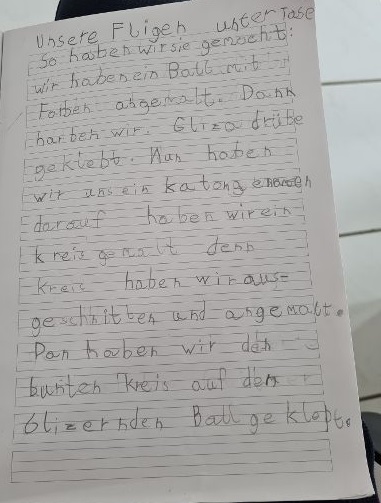 Unsere Fligen unter Tase
So haben wir sie gemacht:
Wir haben ein Ball mit
Farben angemalt. Dann
harben wir. Gliza drübe
geklebt. Nun haben
wir uns ein katong
darauf haben wir ein
kreis gemalt denn
kreis haben wir aus=
geschnitten und angemalt.
Dan haben wir den
bunten kreis auf den
Glizernden Ball geklept.